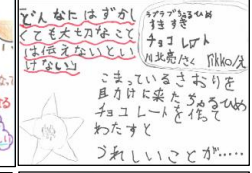 どんなにはずかし
くても大切なこと
は伝えないとい
けない」
ラブラブちゅるひめ
すきすき
チョコレート
rikkoノえ
こまっているさおりを
助けに来たちゅるひめ
チョコレートを作って
わたすと
うれしいことが……